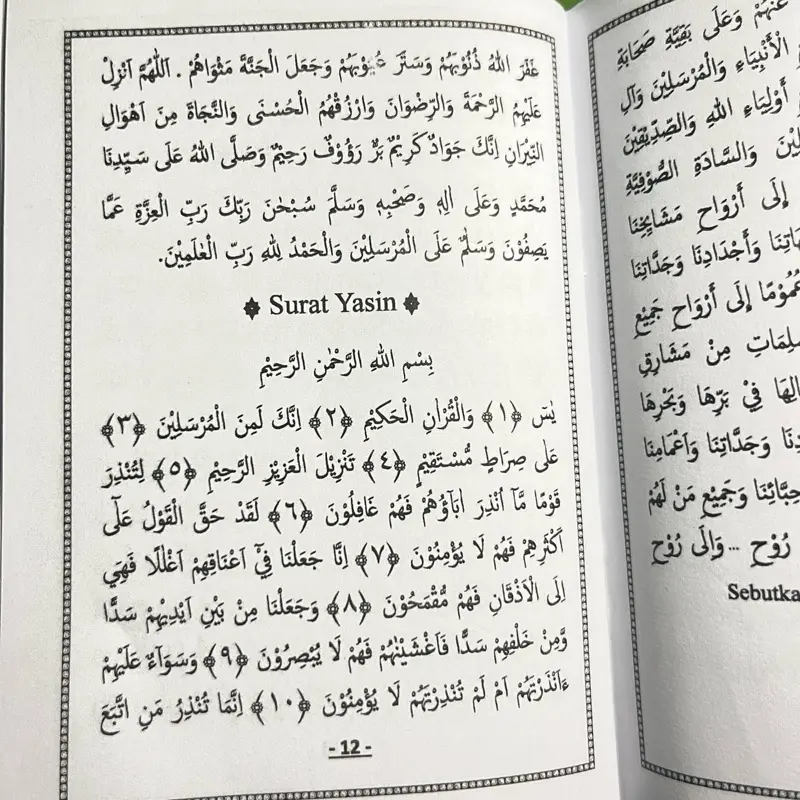 غَفَرَ اللهُ ذُنُوْبَهُمْ وَسَتَرَ عُيُوْبَهُمْ وَجَعَلَ الْجَنَّةَ مَثْوَاهُمْ . اَللّٰهُمَّ اَنْزِلْ
عَلَيْهِمُ الرَّحْمَةَ وَالرِّضْوَانَ وَارْزُقْهُمُ الْحُسْنَى وَالنَّجَاةَ مِنَ اَهْوَالِ
النِّيْرَانِ اِنَّكَ جَوَادٌ كَرِيْمٌ بَرٌّ رَؤُوْفٌ رَحِيْمٌ وَصَلَّى اللهُ عَلَى سَيِّدِنَا
مُحَمَّدٍ وَعَلَى اٰلِهٖ وَصَحْبِهٖ وَسَلَّمَ سُبْحٰنَ رَبِّكَ رَبِّ الْعِزَّةِ عَمَّا
يَصِفُوْنَ وَسَلٰمٌ عَلَى الْمُرْسَلِيْنَ وَالْحَمْدُ لِلّٰهِ رَبِّ الْعٰلَمِيْنَ.
Surat Yasin
بِسْمِ اللهِ الرَّحْمٰنِ الرَّحِيْمِ
يٰسۤ ﴿١﴾ وَالْقُرْاٰنِ الْحَكِيْمِ ﴿٢﴾ اِنَّكَ لَمِنَ الْمُرْسَلِيْنَ ﴿٣﴾
عَلٰى صِرَاطٍ مُّسْتَقِيْمٍ ﴿٤﴾ تَنْزِيْلَ الْعَزِيْزِ الرَّحِيْمِ ﴿٥﴾ لِتُنْذِرَ
قَوْمًا مَّآ اُنْذِرَ اٰبَاۤؤُهُمْ فَهُمْ غَافِلُوْنَ ﴿٦﴾ لَقَدْ حَقَّ الْقَوْلُ عَلٰٓى
اَكْثَرِهِمْ فَهُمْ لَا يُؤْمِنُوْنَ ﴿٧﴾ اِنَّا جَعَلْنَا فِيْٓ اَعْنَاقِهِمْ اَغْلٰلًا فَهِيَ
اِلَى الْاَذْقَانِ فَهُمْ مُّقْمَحُوْنَ ﴿٨﴾ وَجَعَلْنَا مِنْ بَيْنِ اَيْدِيْهِمْ سَدًّا
وَّمِنْ خَلْفِهِمْ سَدًّا فَاَغْشَيْنٰهُمْ فَهُمْ لَا يُبْصِرُوْنَ ﴿٩﴾ وَسَوَاۤءٌ عَلَيْهِمْ
ءَاَنْذَرْتَهُمْ اَمْ لَمْ تُنْذِرْهُمْ لَا يُؤْمِنُوْنَ ﴿١٠﴾ اِنَّمَا تُنْذِرُ مَنِ اتَّبَعَ
- 12 -
عَنْهُمْ وَعَلَى بَقِيَّةِ صَحَابَةِ
الْأَنْبِيَاءِ وَالْمُرْسَلِيْنَ وَآلِ
أَوْلِيَاءِ اللهِ وَالصِّدِّيْقِيْنَ
وَالسَّادَةِ الصُّوْفِيَّةِ
إِلَى أَرْوَاحِ مَشَايِخِنَا
وَأَجْدَادِنَا وَجَدَّاتِنَا
عُمُوْمًا إِلَى أَرْوَاحِ جَمِيْعِ
مِنْ مَشَارِقِ
فِيْ بَرِّهَا وَبَحْرِهَا
وَجَدَّاتِنَا وَاَعْمَامِنَا
وَجَمِيْعِ مَنْ لَهُمْ
رُوْحِ ... وَاِلَى رُوْحِ